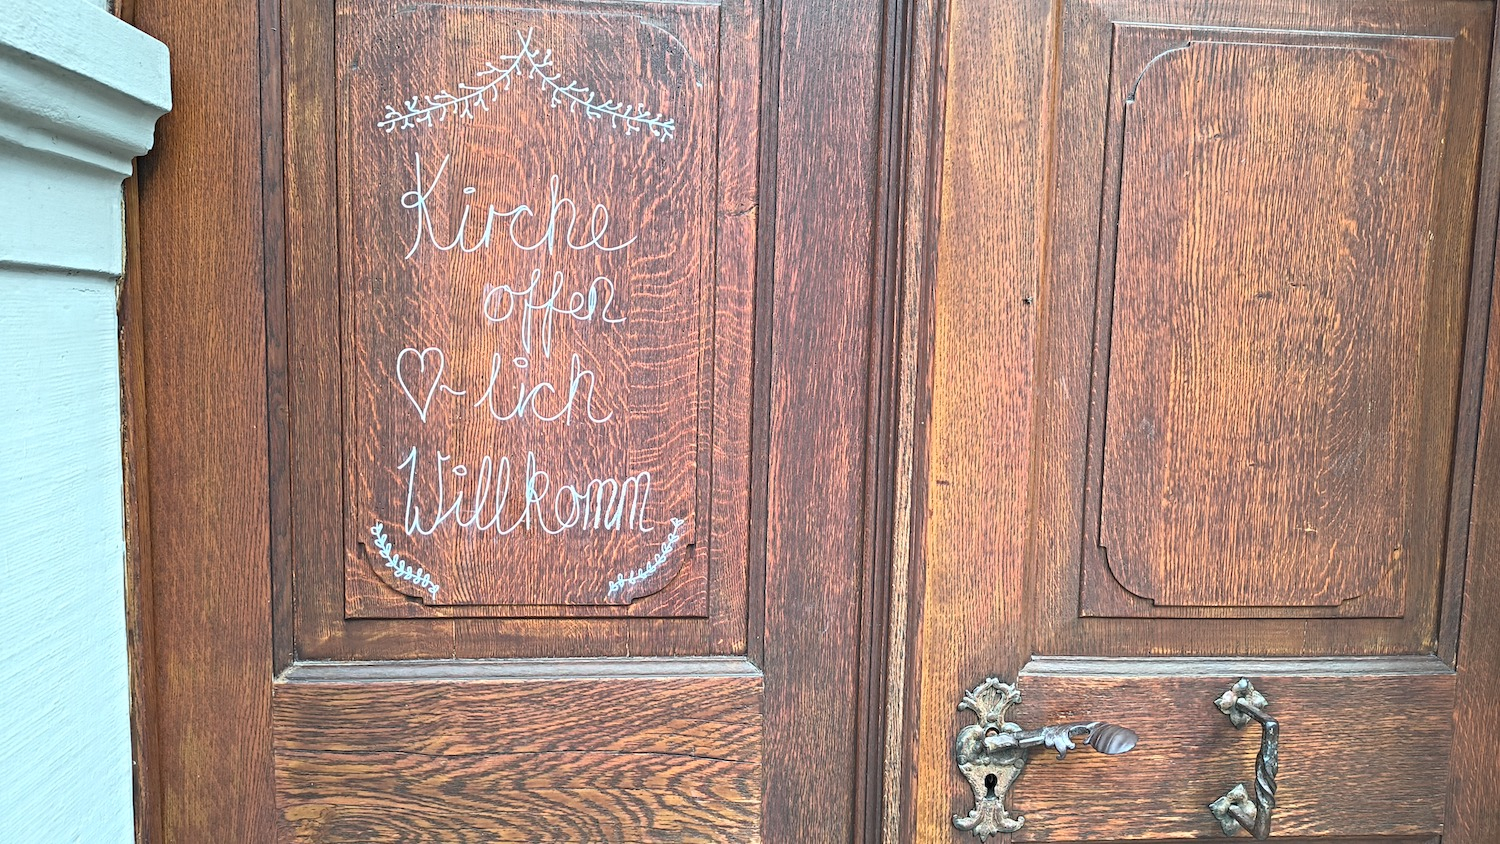 Kirche
offen
♡-lich
Willkomm